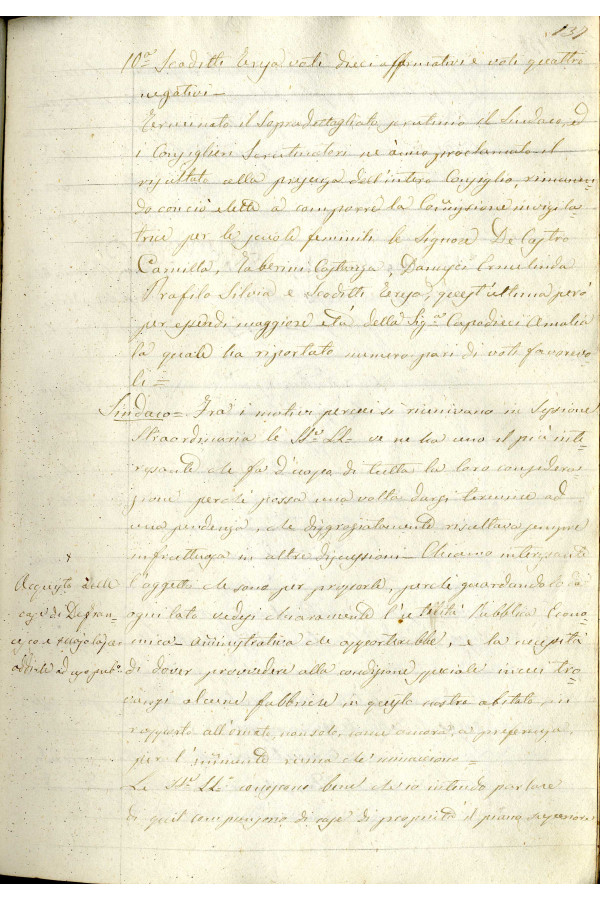 137
10º Scoditti Teresa voti dieci affermativi e voti quattro
negativi —
Terminato il sopradettagliato scrutinio il Sindaco, ed
i Consiglieri Scrutinatori ne ànno proclamato il
risultato alla presenza dell'intero Consiglio, rimanen=
do con ciò elette a comporre la Commissione invigila=
trice per le scuole feminili le Signore De Castro
Camilla, Taberini Costanza, Ermelinda
Profilo Silvia e Scoditti Teresa, quest'ultima però
per essendi maggiore età della Sigª Capodieci Amalia
la quale ha riportato numero pari di voti favorevo=
li =
Sindaco = Fra i motivi per cui si riunivano in Sessione
Straordinaria le SSº LLº ve ne ha uno il più inte=
ressante che fa d'uopo di tutta la loro considera=
zione perchè possa una volta darsi termine ad
una pendenza, che disgraziatamente risultava sempre
infruttuosa in altre discussioni — Chiamo interessante
l'oggetto che sono per proporle, perchè guardandolo da
ogni lato vedesi chiaramente l'utilità Pubblica Econo=
mica — amministrativa che apporterebbe, e la necessità
di dover provvedere alla condizione speciale in cui tro=
vansi alcune fabbriche in questo nostro abitato, in
rapporto all'ornato, non solo, come ancora, a preferenza,
per l'imminente ruina che minacciono =
Le SSº LLº conoscono bene che io intendo parlare
di quel comprensorio di case di proprietà il piano superiore
Acquisto delle
case di Defran=
cesco e
addirle ad uso pubº